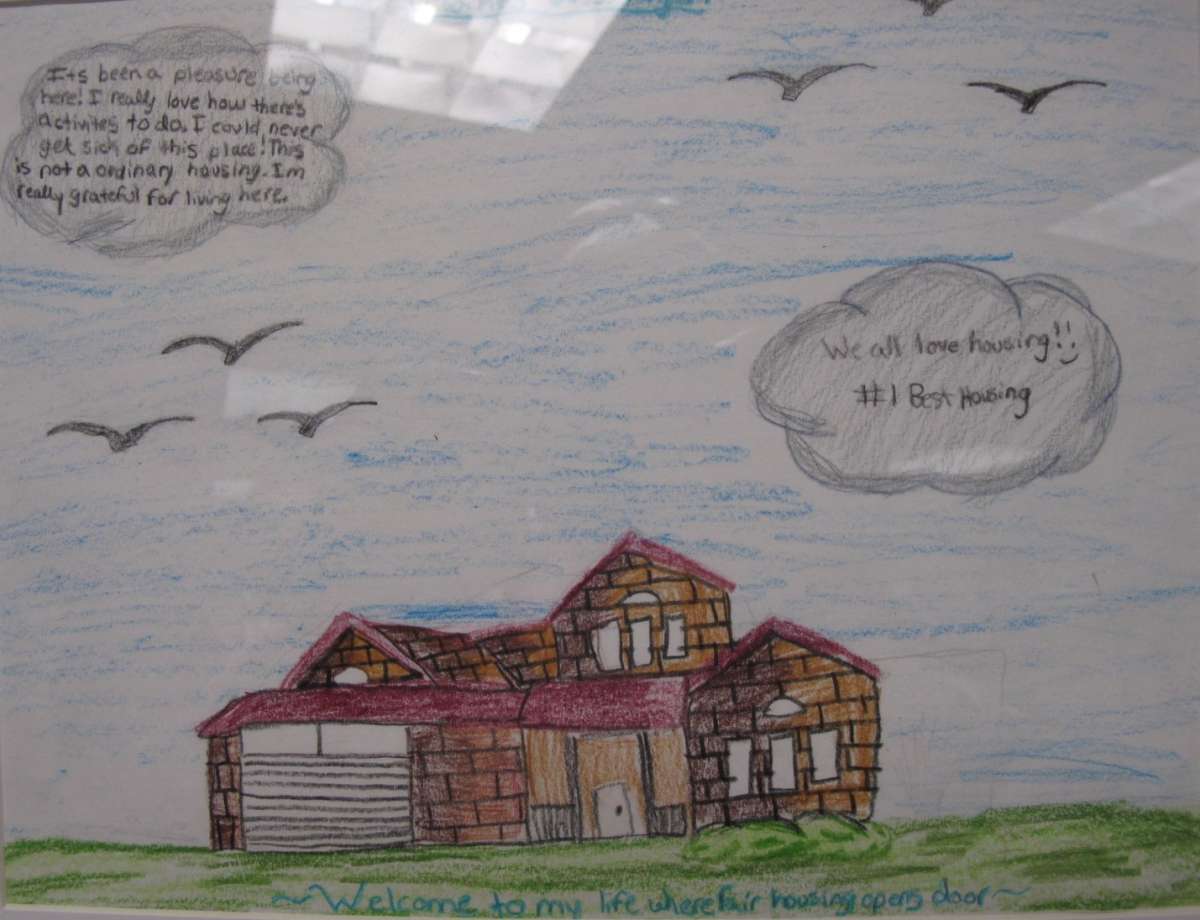 Its been a pleasure being
here! I really love how there's
activites to do. I could never
get sick of this place! This
is not a ordinary housing. Im
really grateful for living here.
We all love housing!!
#1 Best Housing
~Welcome to my life where fair housing opens door~